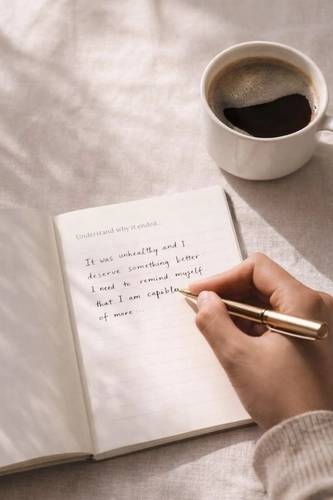 Understand why it ended...
It was unhealthy and I
deserve something better
I need to remind myself
that I am capable
of more ...